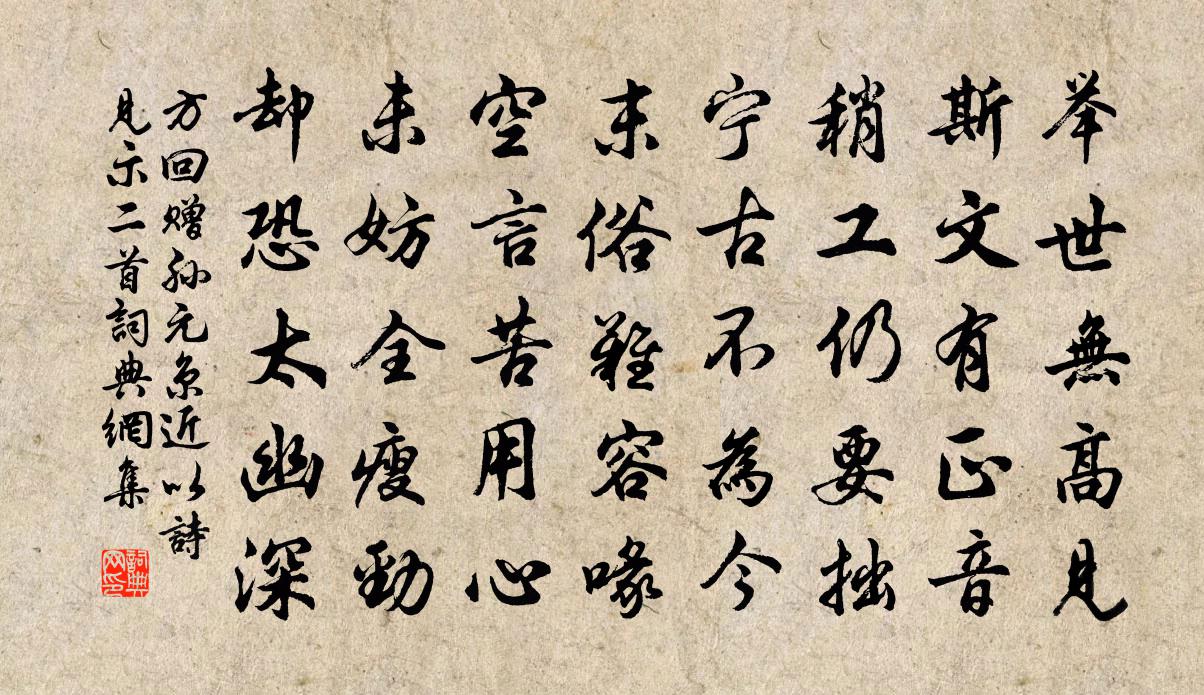 举世無高見
斯文有正音
稍工仍要拙
宁古不為今
末俗難容喙
空言苦用心
未妨全瘦勁
却恐太幽深
方回赠孙元京近以詩
見示二首詞典網集
詞典网印